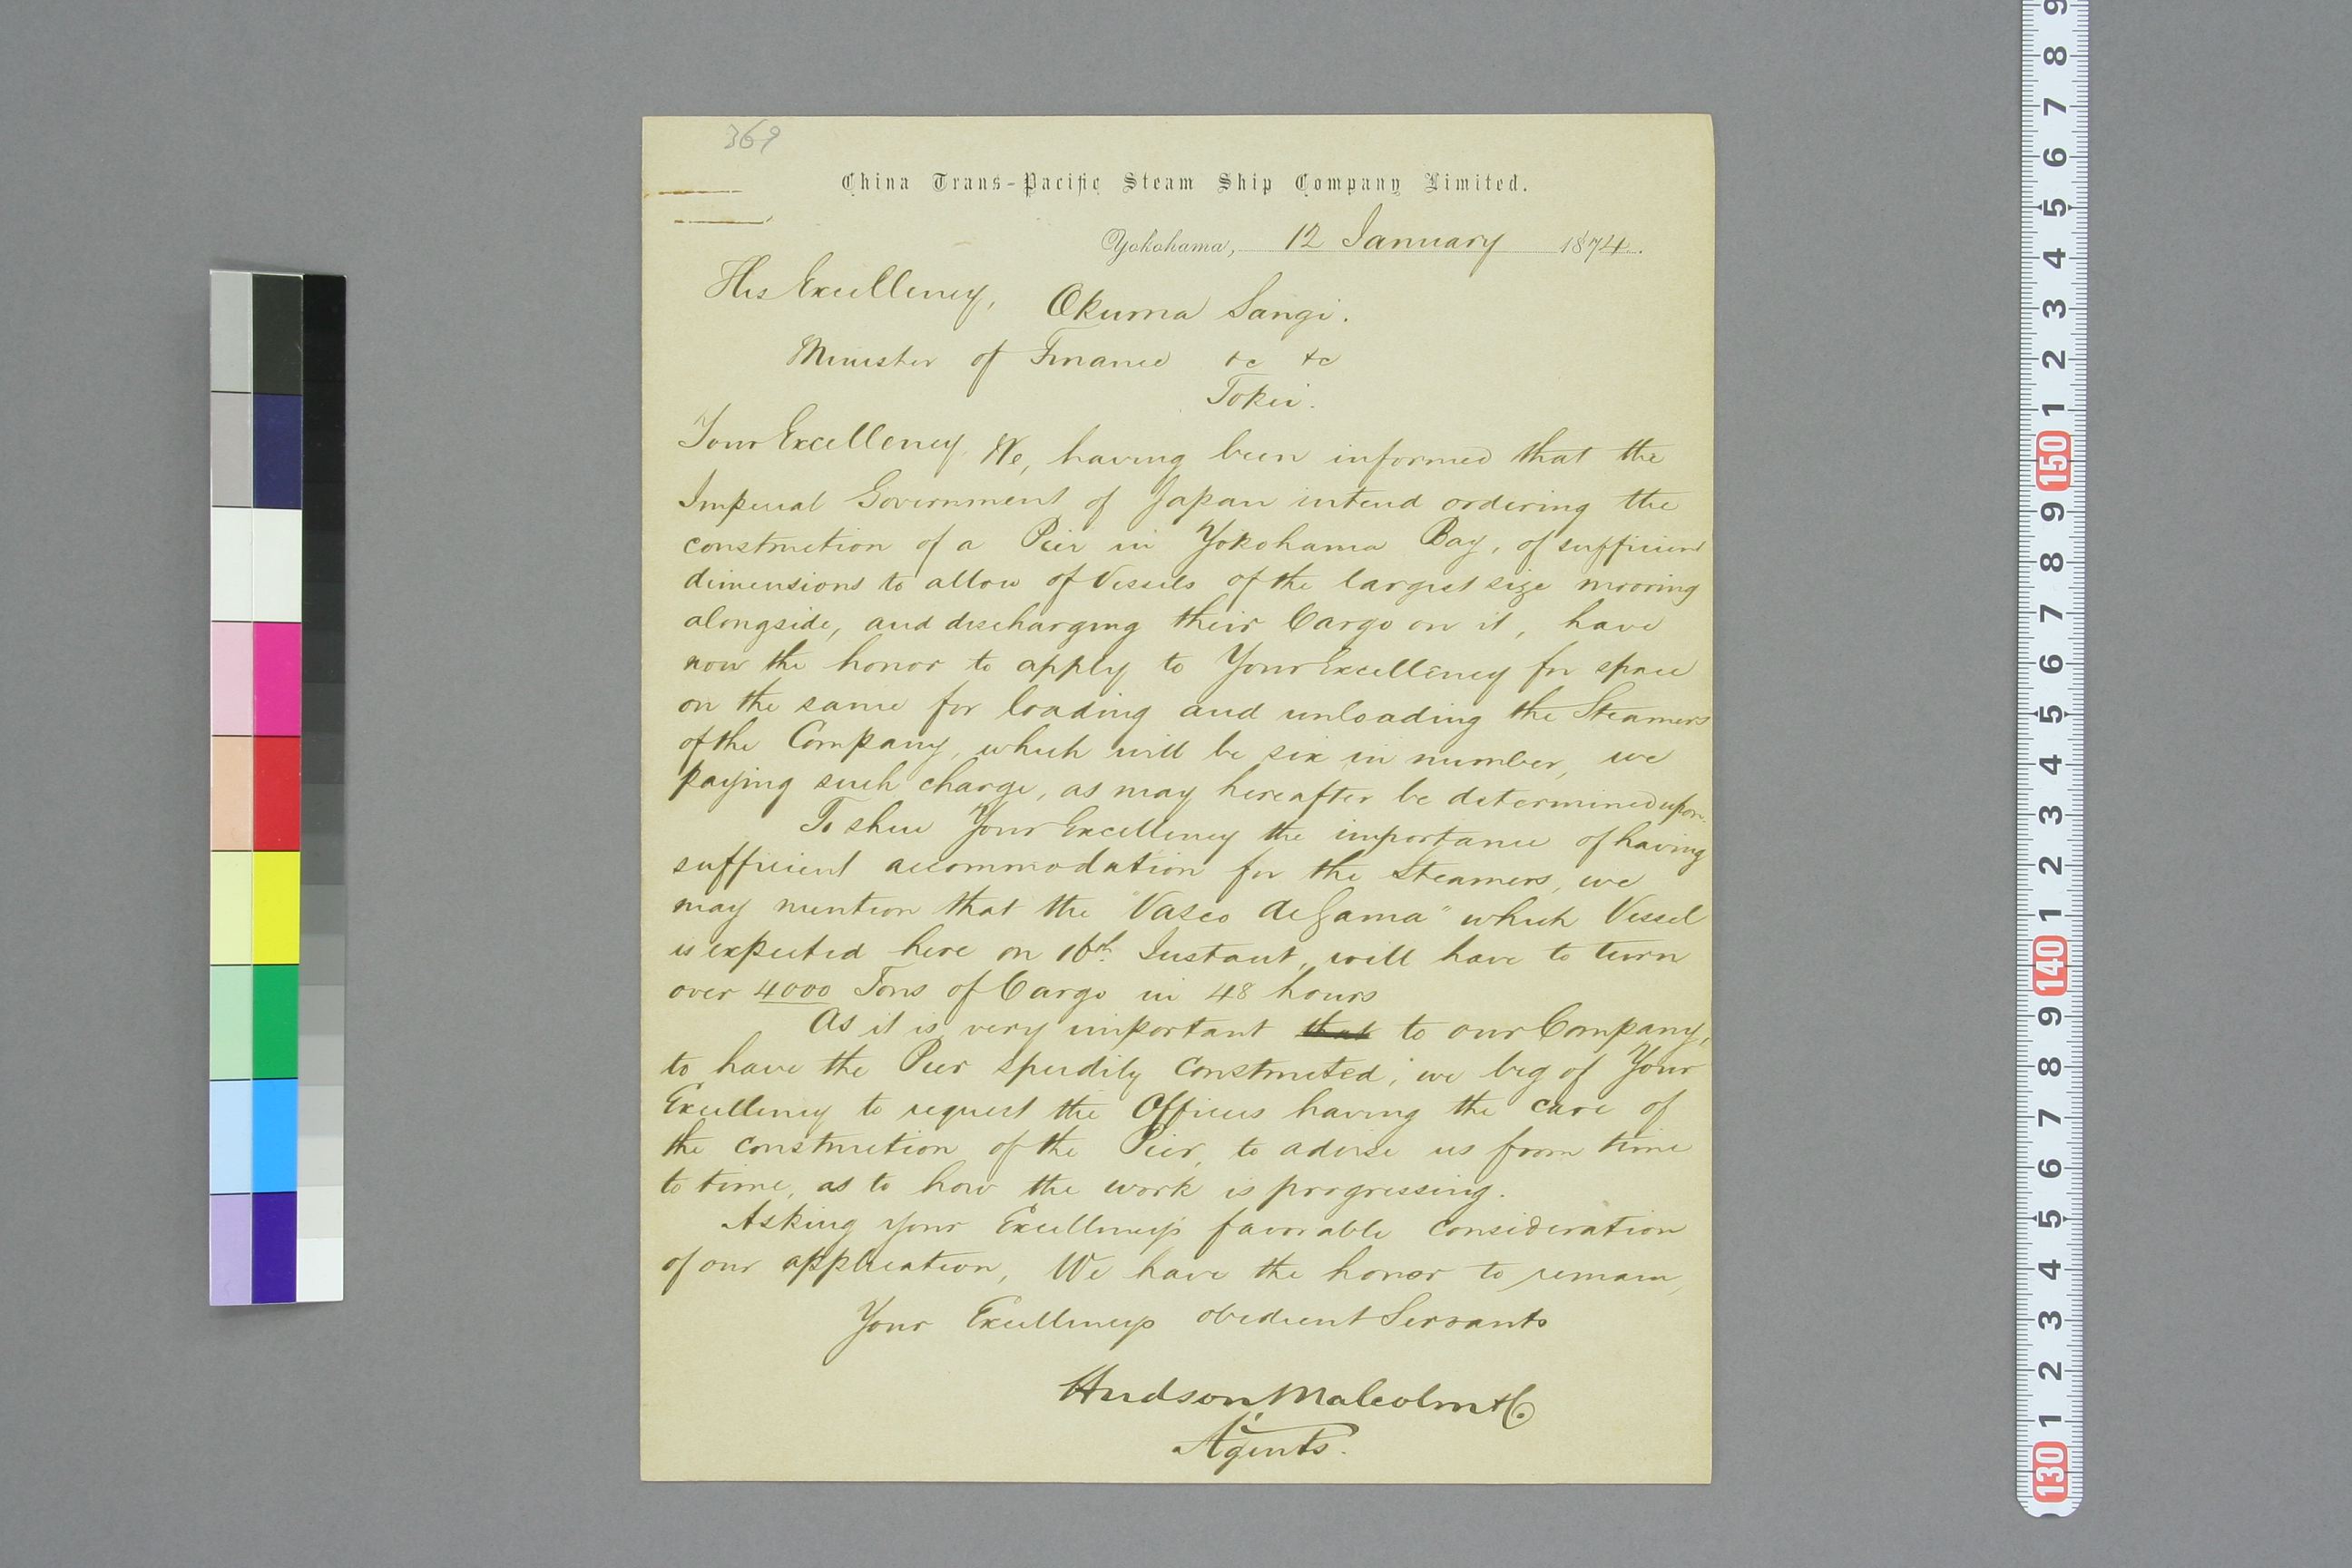 369
China Trans-Pacific Steam Ship Company Limited.
Yokohama, 12 January 1874.
His Excellency, Okuma Sangi.
Minister of Finance &c &c
Tokei.
Your Excellency, We, having been informed that the
Imperial Government of Japan intend ordering the
construction of a Pier in Yokohama Bay, of sufficient
dimensions to allow of Vessels of the largest size mooring
alongside, and discharging their Cargo on it, have
now the honor to apply to Your Excellency for space
on the same for loading and unloading the Steamers
of the Company, which will be six in number, we
paying such charge, as may hereafter be determined upon.
To shew Your Excellency the importance of having
sufficient accommodation for the Steamers, we
may mention that the "Vasco de Gama" which Vessel
is expected here on 16th Instant, will have to turn
over 4000 Tons of Cargo in 48 hours
As it is very important that to our Company,
to have the Pier speedily constructed; we beg of Your
Excellency to request the Officers having the care of
the construction of the Pier, to advise us from time
to time, as to how the work is progressing.
Asking your Excellency's favorable consideration
of our application, We have the honor to remain,
Your Excellency's obedient Servants
Hudson Malcolm & Co.
Agents.
9
8
7
6
5
4
3
2
1
150
9
8
7
6
5
4
3
2
1
140
9
8
7
6
5
4
3
2
1
130